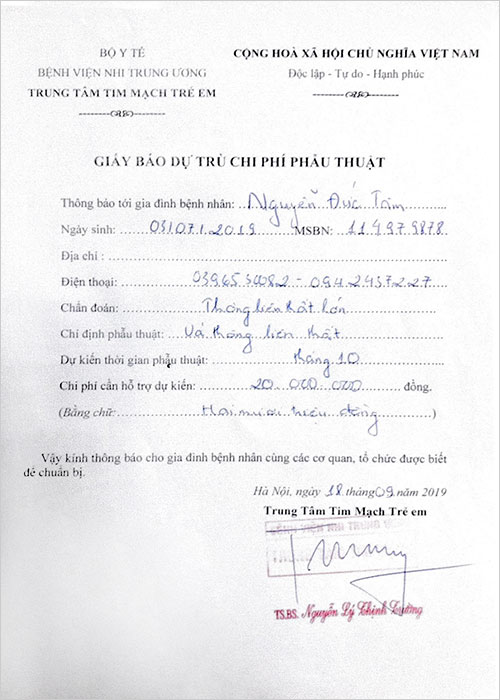 BỘ Y TẾ
BỆNH VIỆN NHI TRUNG ƯƠNG
TRUNG TÂM TIM MẠCH TRẺ EM
CỘNG HOÀ XÃ HỘI CHỦ NGHĨA VIỆT NAM
Độc lập - Tự do - Hạnh phúc
GIẤY BÁO DỰ TRÙ CHI PHÍ PHẪU THUẬT
Thông báo tới gia đình bệnh nhân: Nguyễn Đức Tâm
Ngày sinh: 03/07/2019 MSBN: 114979878
Địa chỉ :
Điện thoại: 0396530082 - 0942437227
Chẩn đoán: Thông liên thất lớn
Chỉ định phẫu thuật: Vá thông liên thất
Dự kiến thời gian phẫu thuật: tháng 10
Chi phí cần hỗ trợ dự kiến: 20 000 000 đồng.
(Bằng chữ: Hai mươi triệu đồng )
Vậy kính thông báo cho gia đình bệnh nhân cùng các cơ quan, tổ chức được biết
để chuẩn bị.
Hà Nội, ngày 18 tháng 09 năm 2019
Trung Tâm Tim Mạch Trẻ em
BỆNH VIỆN NHI TRUNG
TS.BS. Nguyễn Lý Thịnh Trường